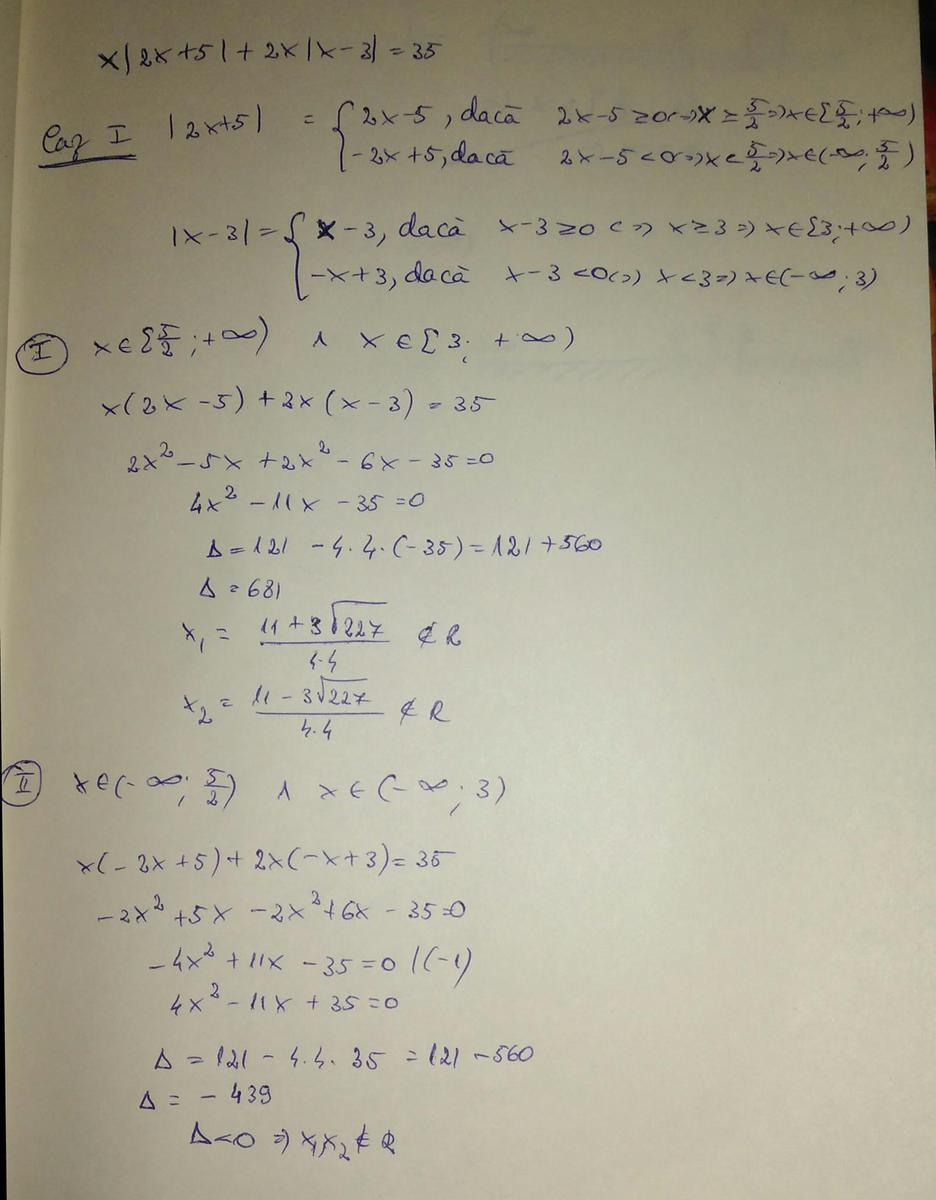 x|2x+5|+2x|x-3|=35
Caz I |2x+5| = { 2x-5, dacă 2x-5≥0<=>x≥5/2=>x∈[5/2;+∞)
-2x+5, dacă 2x-5<0<=>x<5/2=>x∈(-∞;5/2)
|x-3| = { x-3, dacă x-3≥0<=>x≥3=>x∈[3;+∞)
-x+3, dacă x-3<0<=>x<3=>x∈(-∞;3)
I x∈[5/2;+∞) ∧ x∈[3;+∞)
x(2x-5)+2x(x-3)=35
2x²-5x+2x²-6x-35=0
4x²-11x-35=0
Δ=121-4·4·(-35)=121+560
Δ=681
x₁= (11+3√227)/(4·4) ∉ R
x₂= (11-3√227)/(4·4) ∉ R
II x∈(-∞;5/2) ∧ x∈(-∞;3)
x(-2x+5)+2x(-x+3)=35
-2x²+5x-2x²+6x-35=0
-4x²+11x-35=0 |(-1)
4x²-11x+35=0
Δ=121-4·4·35=121-560
Δ=-439
Δ<0=>x₁x₂∉R